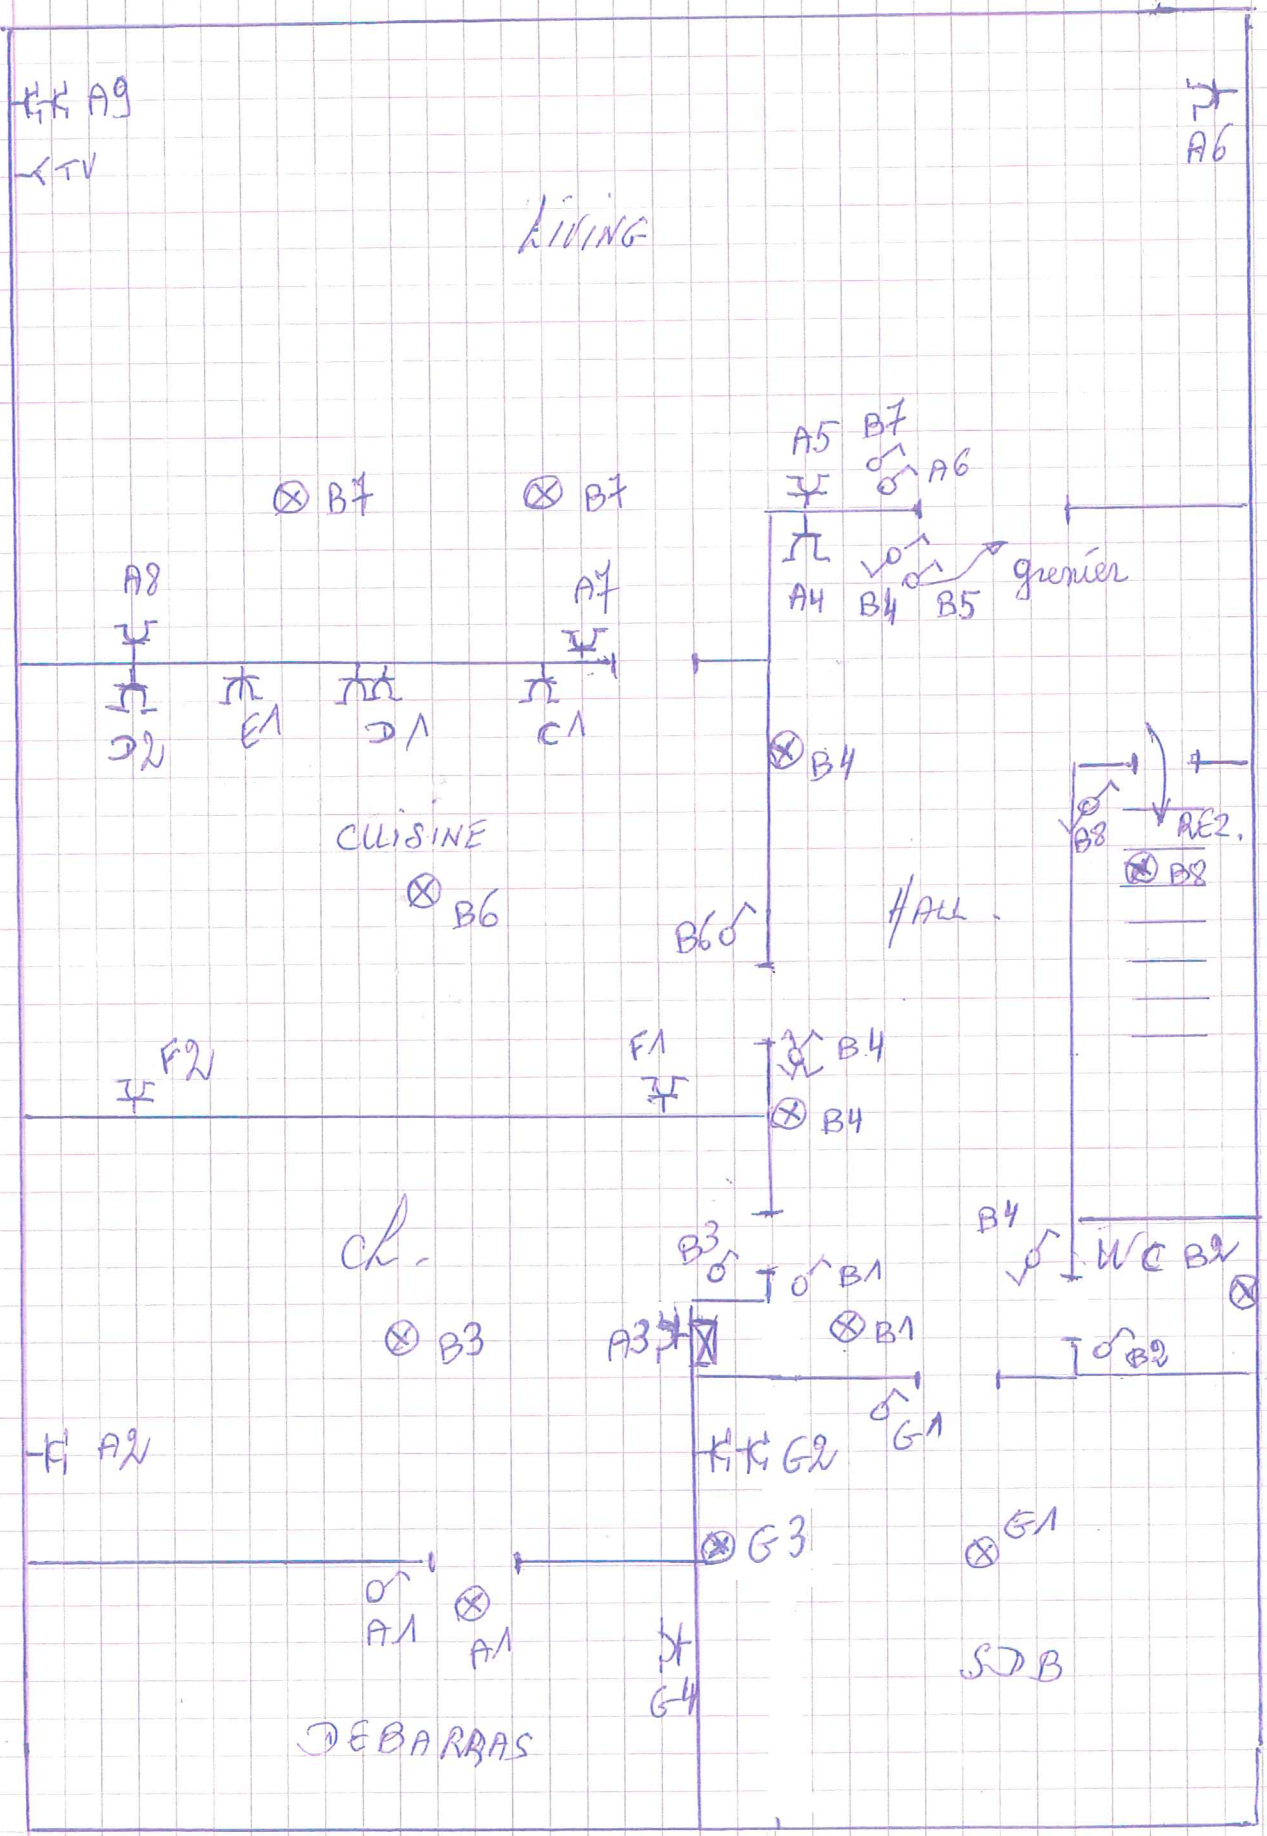 A9
TV
A6
LIVING
A5 B7
A6
B7 B7
A8 A7
A4 B4 B5 grenier
D2 E1 D1 C1
B4
CUISINE
B8 REZ.
B8
B6
B6 HALL.
F2 F1 B4
B4
Ch.
B3 B1 B4 WC B2
B3 A3 B1 B2
A2 G2 G1
G3 G1
A1 A1
G4 SDB
DEBARRAS